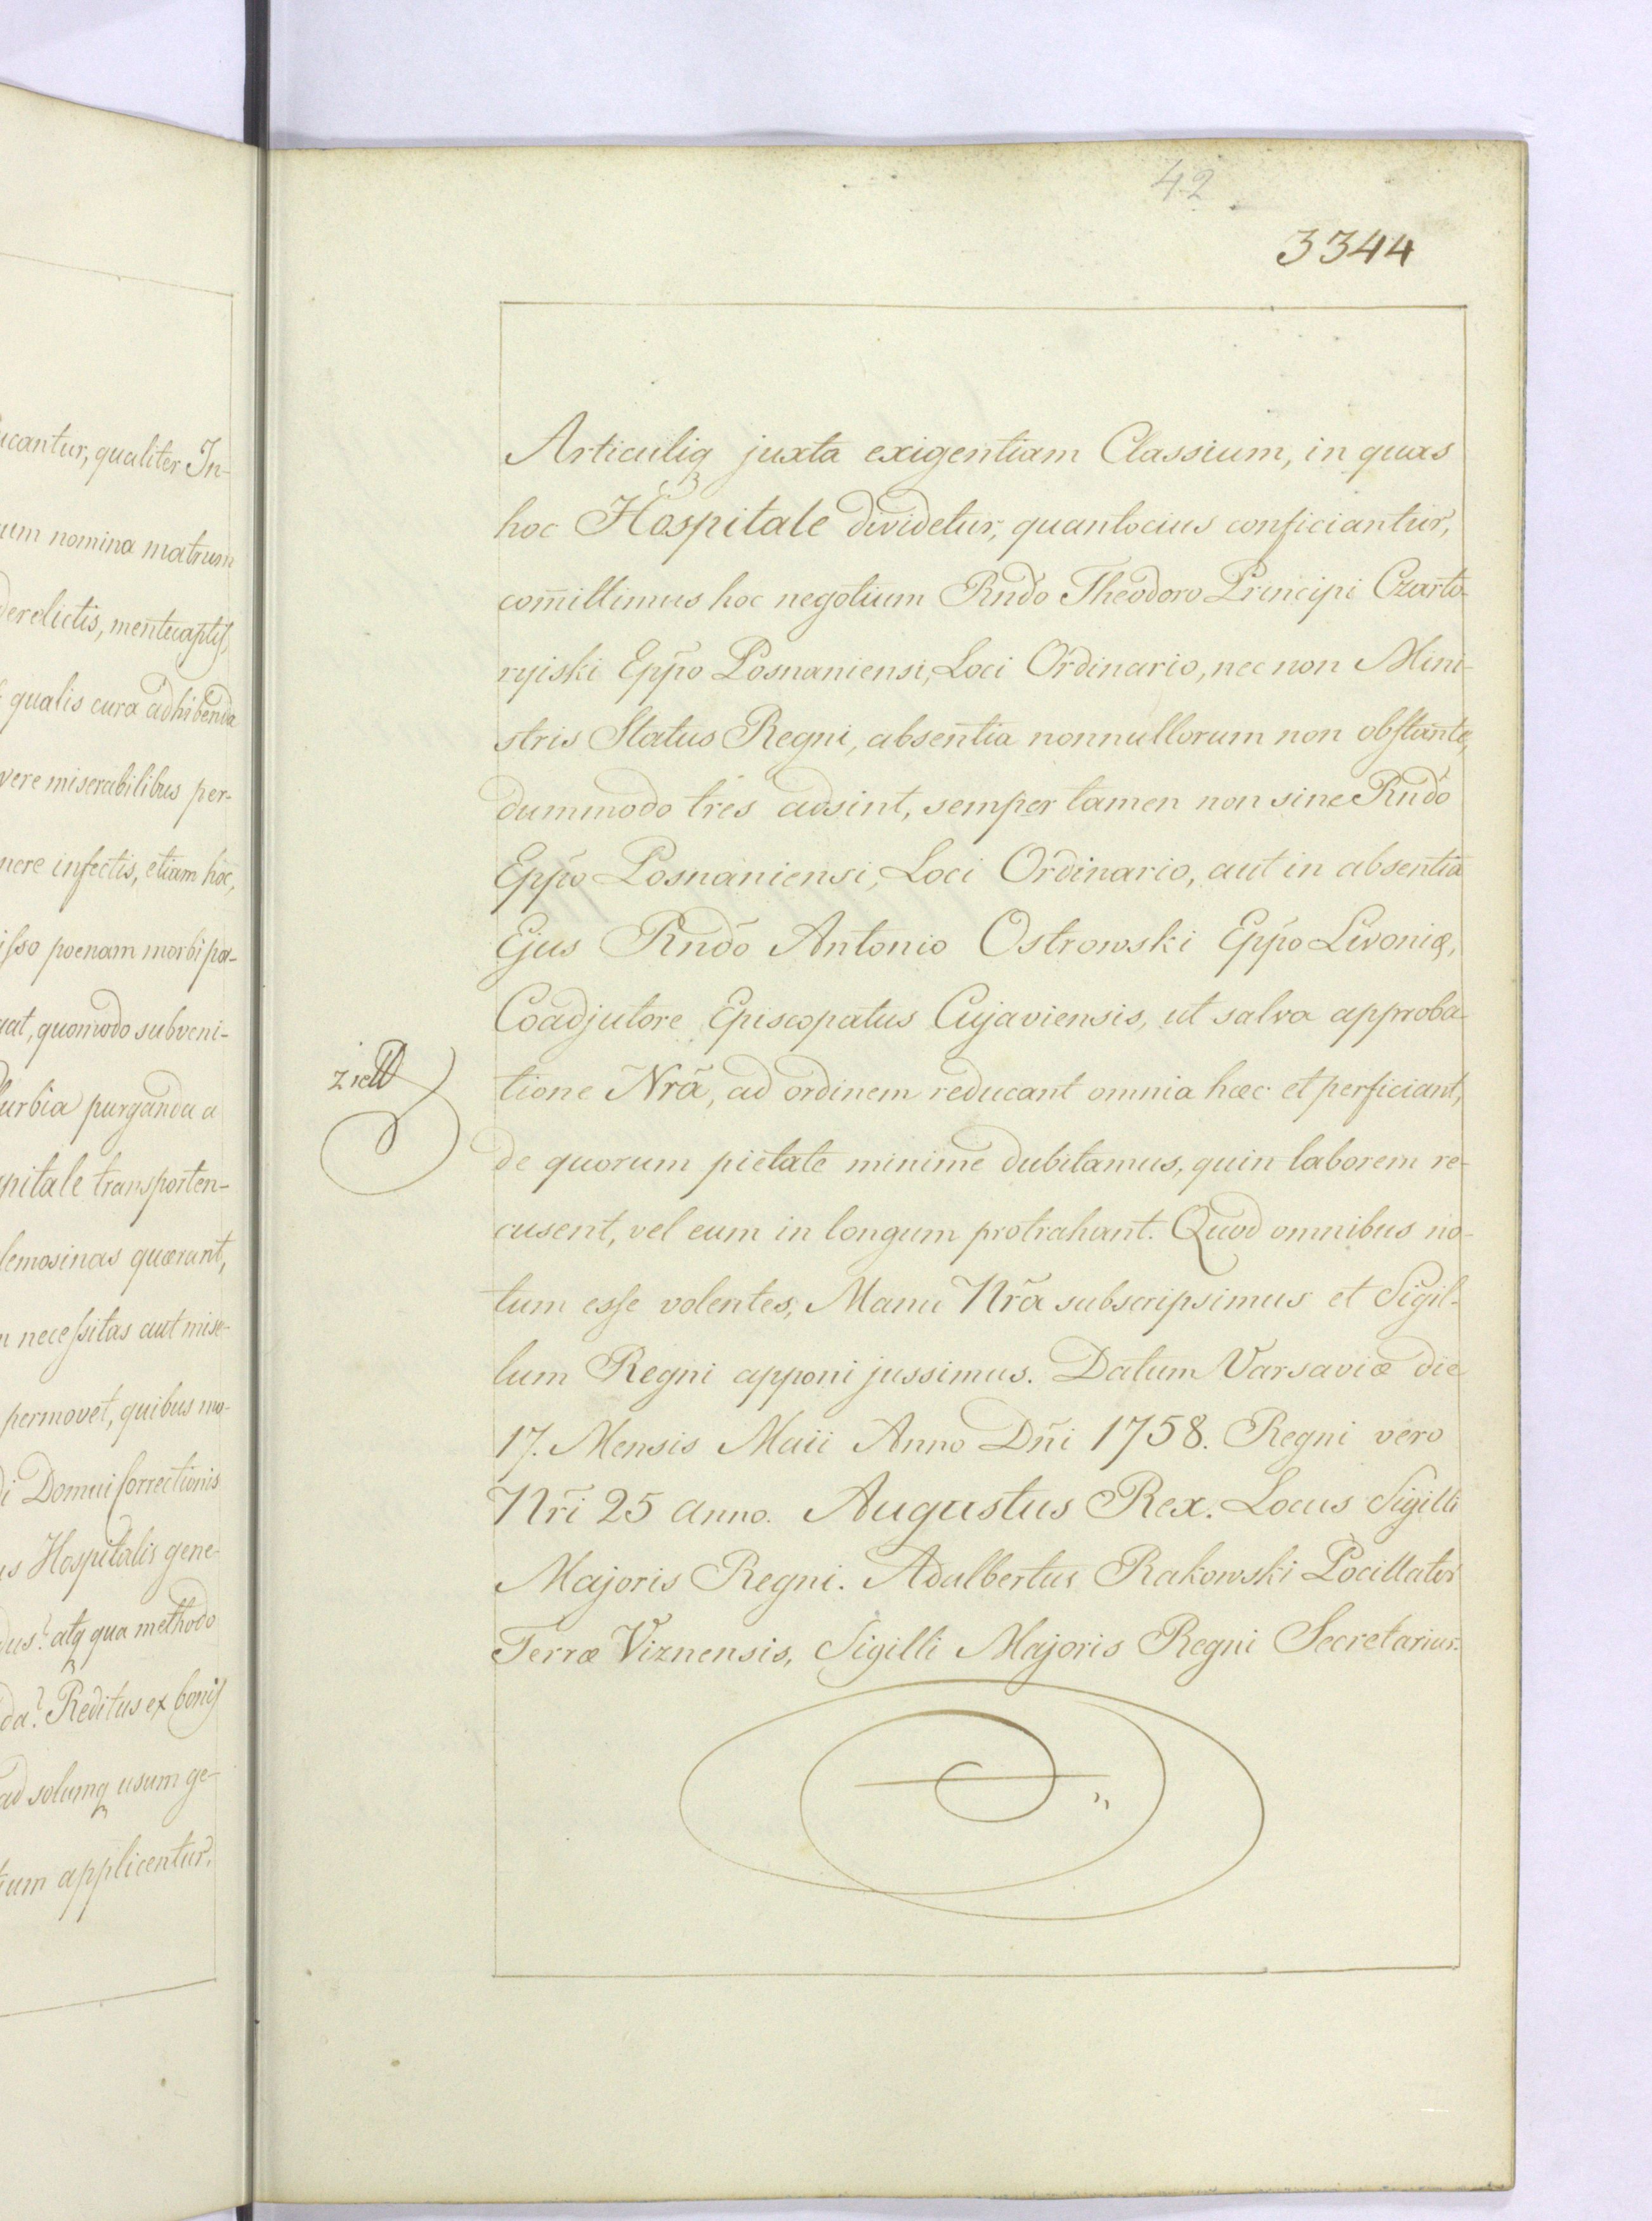 ucantur, qualiter In-
um nomina matrum
derelictis, mentecaptis,
qualis cura adhibenda
vere miserabilibus per-
nere infectis, etiam hoc,
isso poenam morbi pa-
uat, quomodo subveni-
urbia purganda a
pitale transporten-
lemosinas quærant,
necessitas aut mise-
permovet, quibus mo-
di Domui Correctionis
us Hospitalis gene-
dus? atq qua methodo
da? Reditus ex bonis
ad solumq usum ge-
ium applicentur.
42
3344
Articuliq juxta exigentiam Classium, in quas
hoc Hospitale dividetur, quantocius conficiantur,
com̄ittimus hoc negotium Rndo Theodoro Principi Czarto-
ryiski Eppo Posnaniensi, Loci Ordinario, nec non Mini-
stris Status Regni, absentia nonnullorum non obstante,
dummodo tres adsint, semper tamen non sine Rndo
Eppo Posnaniensi, Loci Ordinario, aut in absentia
Ejus Rndo Antonio Ostrowski Eppo Livoniæ,
Coadjutore Episcopatus Cujaviensis, ut salva approba-
tione Nrã, ad ordinem reducant omnia hæc et perficiant,
de quorum pietate minime dubitamus, quin laborem re-
cusent, vel eum in longum protrahant. Quod omnibus no-
tum esse volentes, Manu Nrã subscripsimus et Sigil-
lum Regni apponi jussimus. Datum Varsaviæ die
17. Mensis Maii Anno Dñi 1758. Regni vero
Nri 25 anno. Augustus Rex. Locus Sigilli
Majoris Regni. Adalbertus Rakowski Pocillator
Terræ Viznensis, Sigilli Majoris Regni Secretarius.